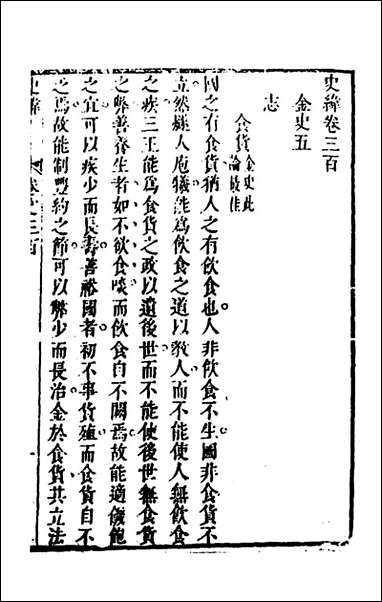 史緯卷三百
金史五
志
食貨金史此論最佳
國之有食貨猶人之有飲食也人非飲食不生國非食貨不
立然燧人庖犧能爲飲食之道以教人而不能使人無飲食
之疾三王能爲食貨之政以遺後世而不能使後世無食貨
之弊善養生者如不欲食啖而飲食自不闕焉故能適饑飽
之宜可以疾少而長壽善裕國者初不事貨殖而食貨自不
乏焉故能制豐約之節可以弊少而長治金於食貨其立法
史緯 卷之三百